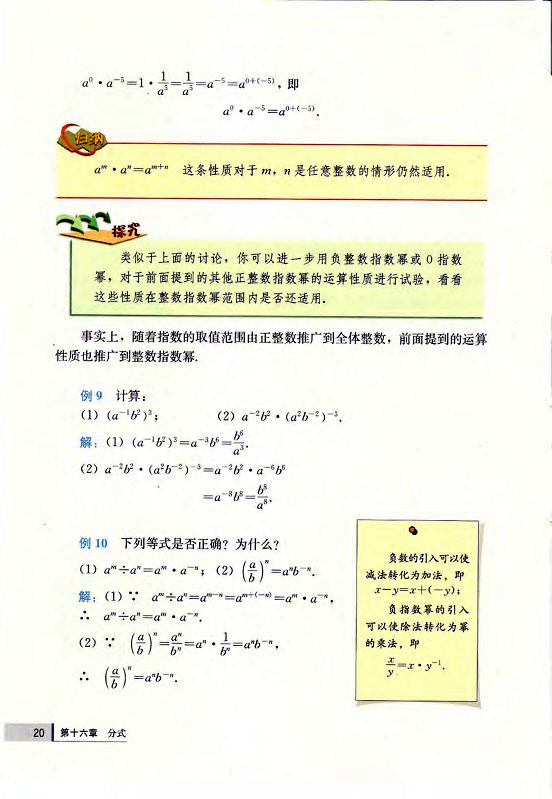 a⁰·a⁻⁵=1·1/a⁵=1/a⁵=a⁻⁵=a⁰⁺⁽⁻⁵⁾，即
a⁰·a⁻⁵=a⁰⁺⁽⁻⁵⁾.
归纳
aᵐ·aⁿ=aᵐ⁺ⁿ 这条性质对于 m，n 是任意整数的情形仍然适用.
探究
类似于上面的讨论，你可以进一步用负整数指数幂或 0 指数
幂，对于前面提到的其他正整数指数幂的运算性质进行试验，看看
这些性质在整数指数幂范围内是否还适用.
事实上，随着指数的取值范围由正整数推广到全体整数，前面提到的运算
性质也推广到整数指数幂.
例 9 计算：
(1) (a⁻¹b²)³； (2) a⁻²b²·(a²b⁻²)⁻³.
解：(1) (a⁻¹b²)³=a⁻³b⁶=b⁶/a³.
(2) a⁻²b²·(a²b⁻²)⁻³=a⁻²b²·a⁻⁶b⁶
=a⁻⁸b⁸=b⁸/a⁸.
例 10 下列等式是否正确？为什么？
(1) aᵐ÷aⁿ=aᵐ·a⁻ⁿ； (2) (a/b)ⁿ=aⁿb⁻ⁿ.
解：(1) ∵ aᵐ÷aⁿ=aᵐ⁻ⁿ=aᵐ⁺⁽⁻ⁿ⁾=aᵐ·a⁻ⁿ，
∴ aᵐ÷aⁿ=aᵐ·a⁻ⁿ.
(2) ∵ (a/b)ⁿ=aⁿ/bⁿ=aⁿ·1/bⁿ=aⁿb⁻ⁿ，
∴ (a/b)ⁿ=aⁿb⁻ⁿ.
负数的引入可以使
减法转化为加法，即
x－y=x+(－y)；
负指数幂的引入
可以使除法转化为幂
的乘法，即
x/y=x·y⁻¹.
20 第十六章 分式